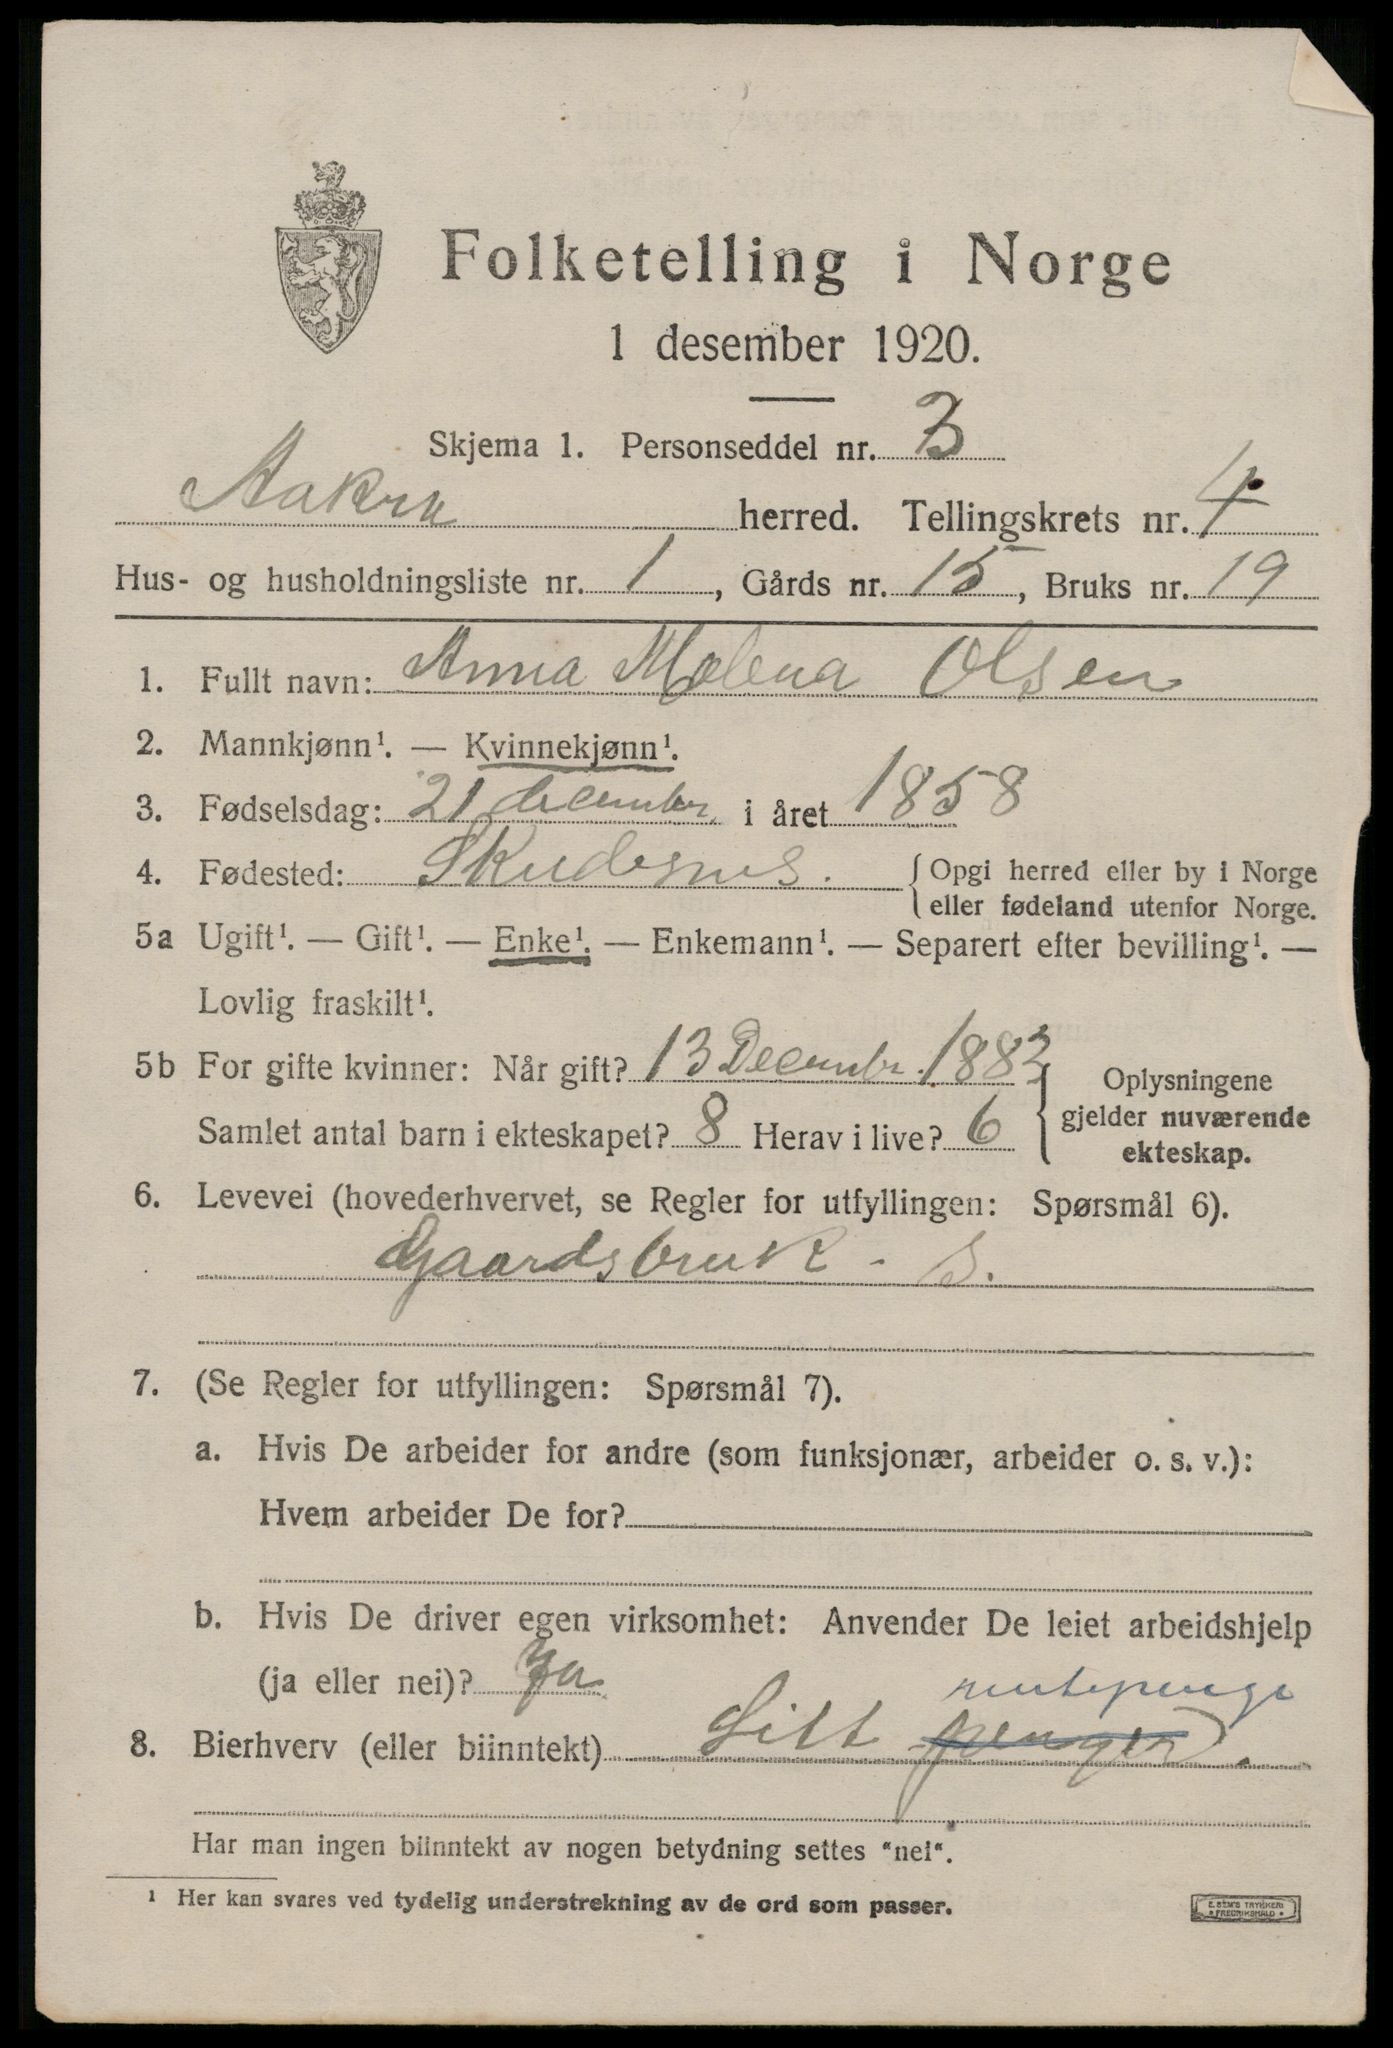 Folketelling i Norge
1 desember 1920.
Skjema 1. Personseddel nr. 3
Aakra herred. Tellingskrets nr. 4
Hus- og husholdningsliste nr. 1, Gårds nr. 15, Bruks nr. 19
1. Fullt navn: Anna Malena Olsen
2. Mannkjønn¹. — Kvinnekjønn¹.
3. Fødselsdag: 21 december i året 1858
4. Fødested: Skudesnes. { Opgi herred eller by i Norge
eller fødeland utenfor Norge.
5a Ugift¹. — Gift¹. — Enke¹. — Enkemann¹. — Separert efter bevilling¹. —
Lovlig fraskilt¹.
5b For gifte kvinner: Når gift? 13 Decembr. 1883
Samlet antal barn i ekteskapet? 8 Herav i live? 6
Oplysningene
gjelder nuværende
ekteskap.
6. Levevei (hovederhvervet, se Regler for utfyllingen: Spørsmål 6).
Gaardsbruk - S.
7. (Se Regler for utfyllingen: Spørsmål 7).
a. Hvis De arbeider for andre (som funksjonær, arbeider o. s. v.):
Hvem arbeider De for?
b. Hvis De driver egen virksomhet: Anvender De leiet arbeidshjelp
(ja eller nei)? Ja
rentepenge
8. Bierhverv (eller biinntekt) Litt penger.
Har man ingen biinntekt av nogen betydning settes "nei".
¹ Her kan svares ved tydelig understrekning av de ord som passer.
E. SEM'S TRYKKERI
FREDRIKSHALD